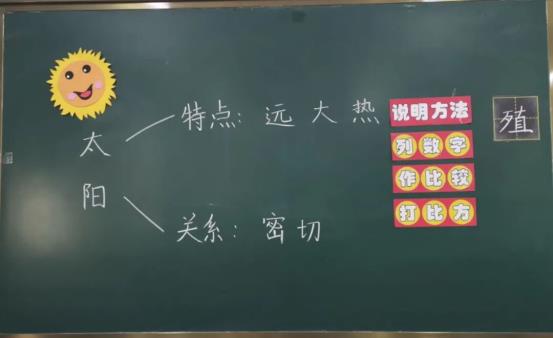 太阳
特点：远 大 热
关系：密切
说明方法
列数字
作比较
打比方
殖